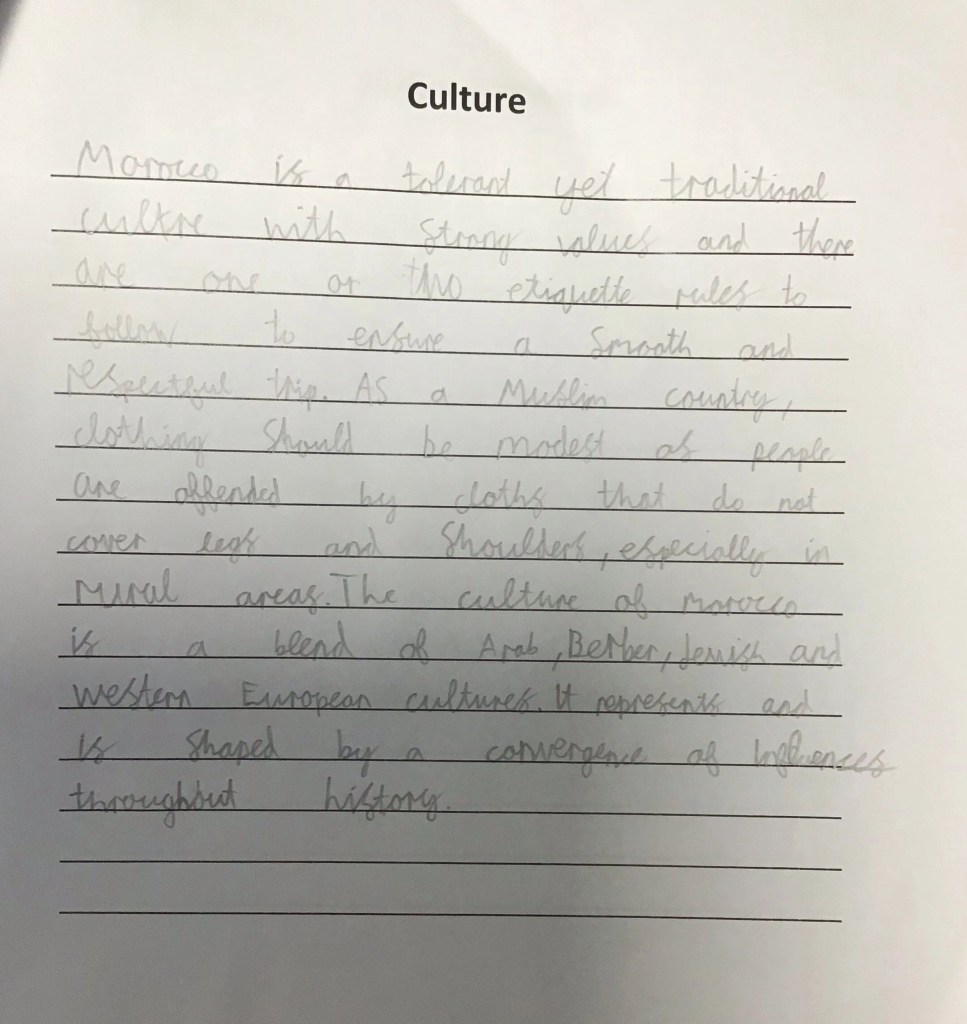 Culture
Morocco is a tolerant yet traditional
cultre with strong values and there
are one or two etiquette rules to
follow to ensure a smooth and
respectful trip. AS a Muslim country,
clothing should be modest as people
are offended by cloths that do not
cover legs and shoulders, especially in
rural areas. The culture of morocco
is a blend of Arab, Berber, Jewish and
western European cultures. It represents and
is shaped by a convergence of Influences
throughout history.